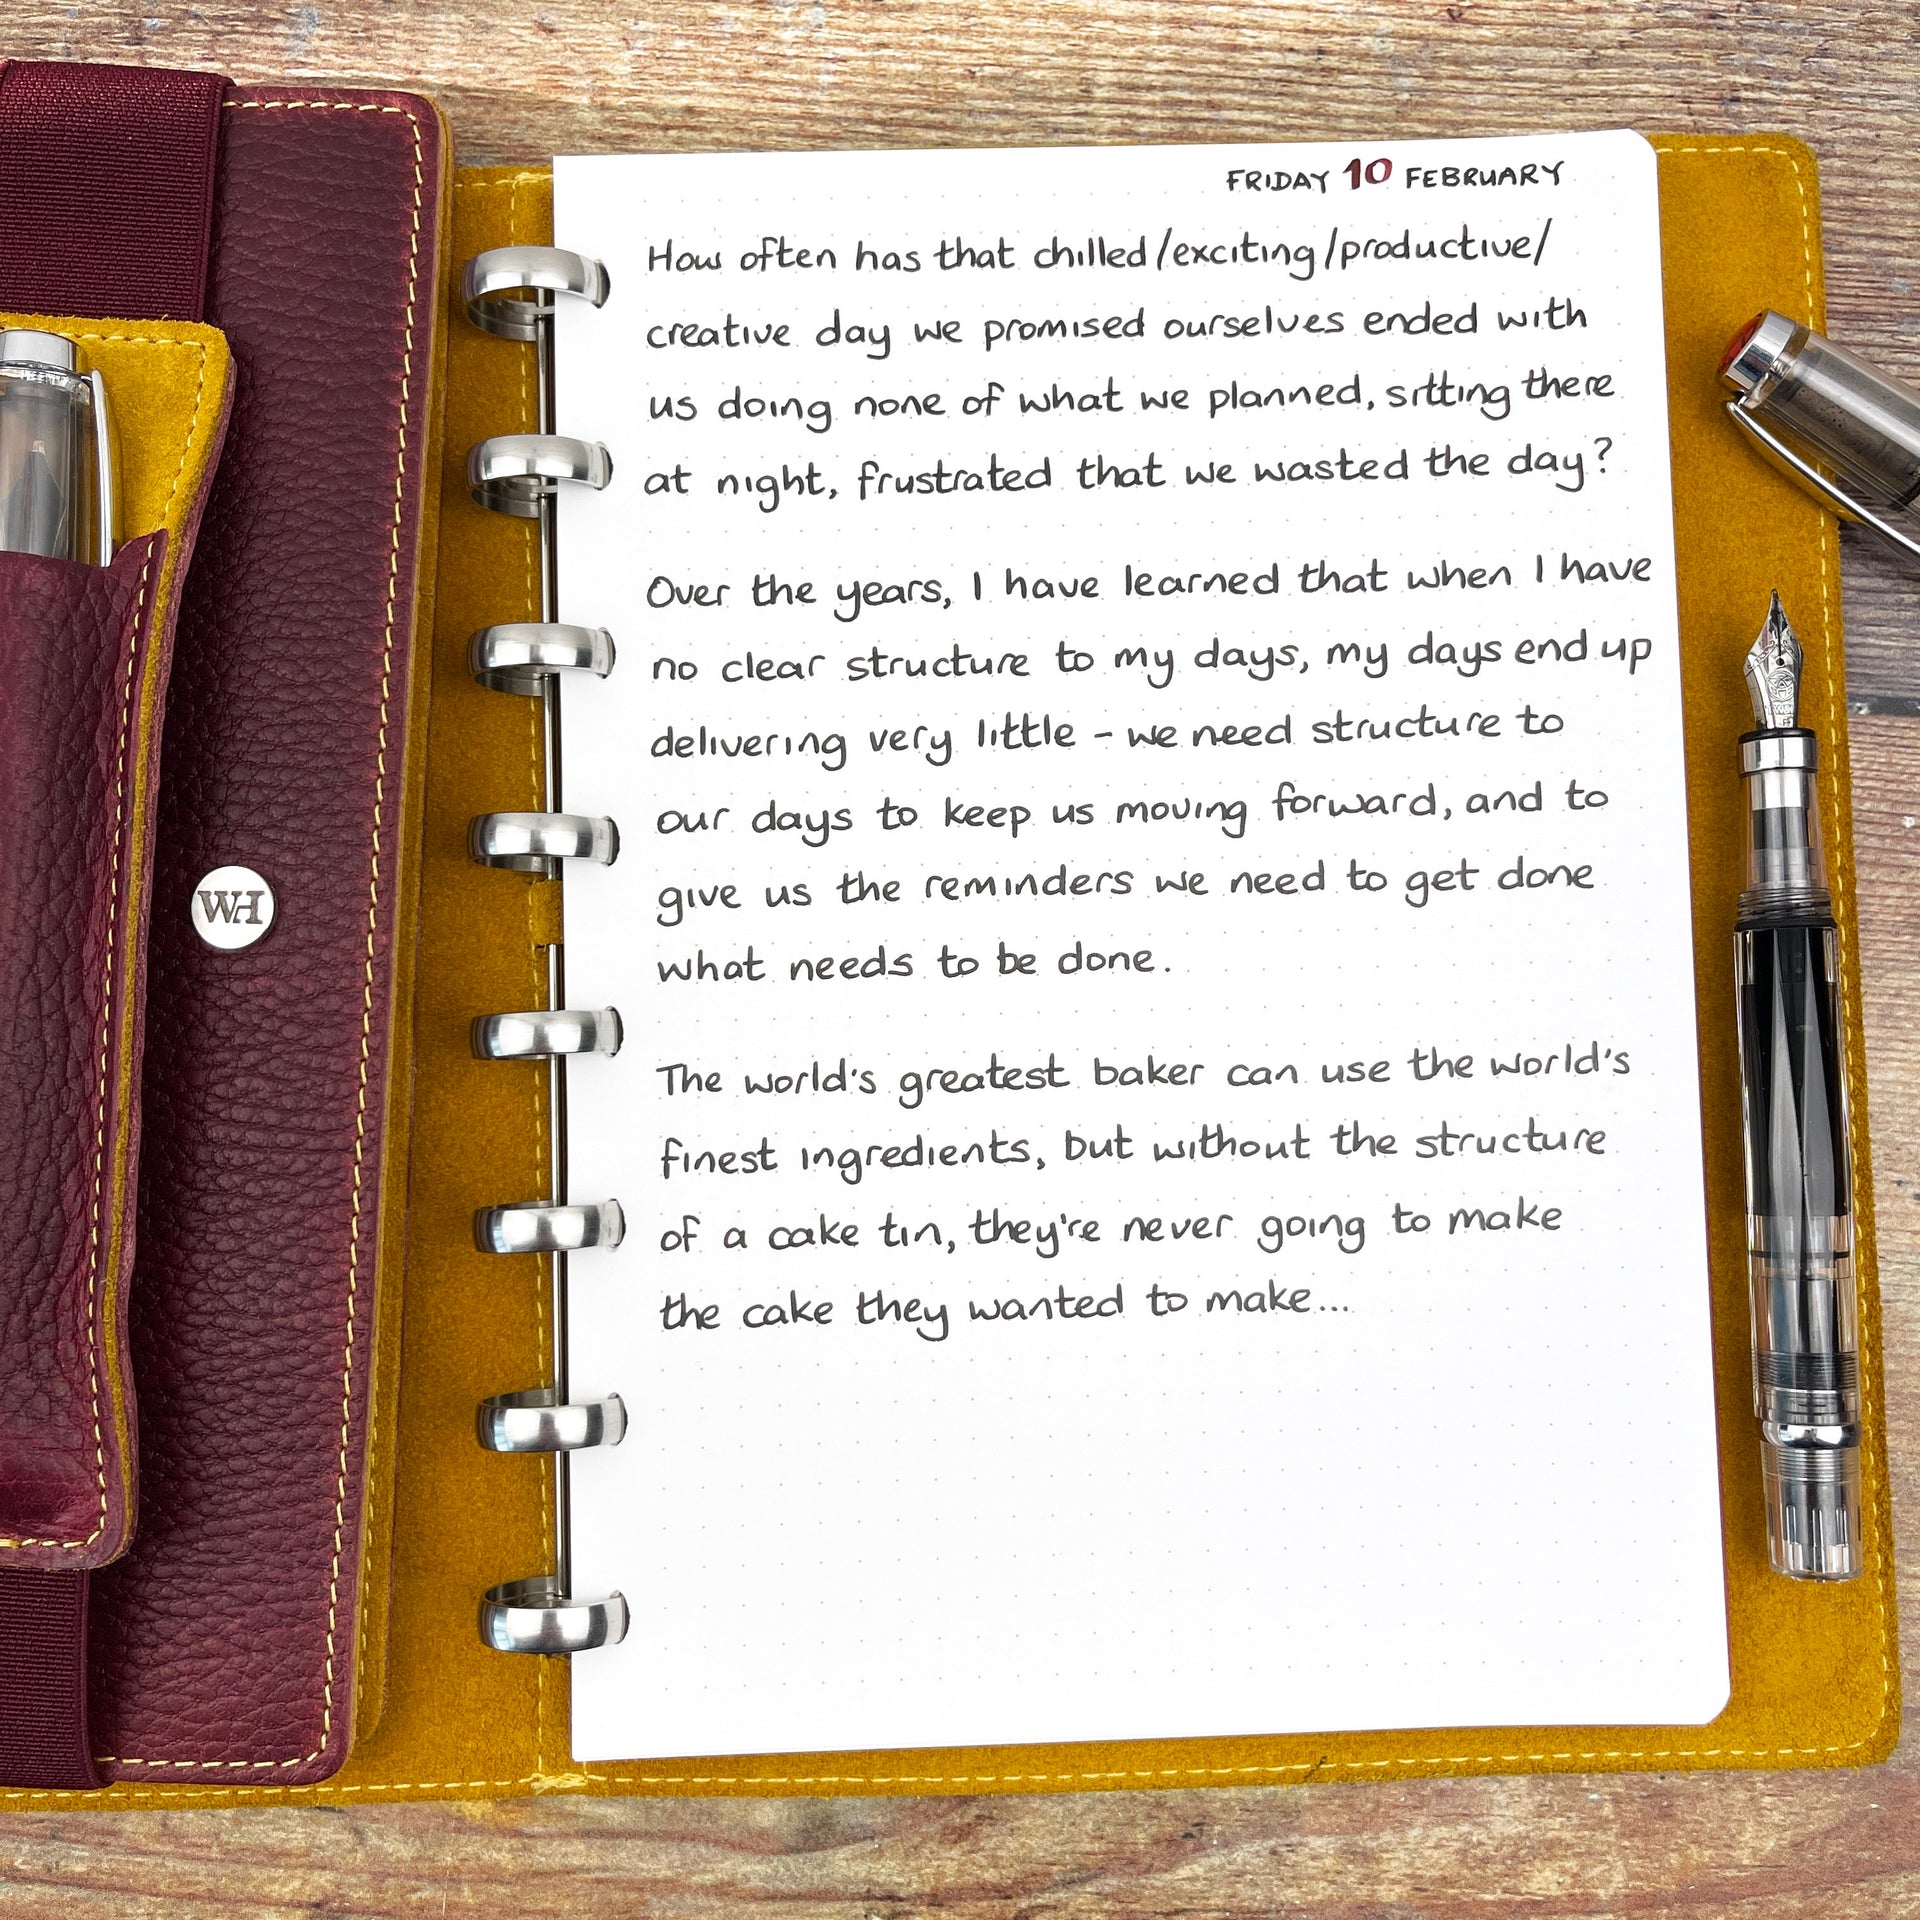 FRIDAY 10 FEBRUARY
How often has that chilled/exciting/productive/
creative day we promised ourselves ended with
us doing none of what we planned, sitting there
at night, frustrated that we wasted the day?
Over the years, I have learned that when I have
no clear structure to my days, my days end up
delivering very little - we need structure to
our days to keep us moving forward, and to
give us the reminders we need to get done
what needs to be done.
The world's greatest baker can use the world's
finest ingredients, but without the structure
of a cake tin, they're never going to make
the cake they wanted to make...
WH